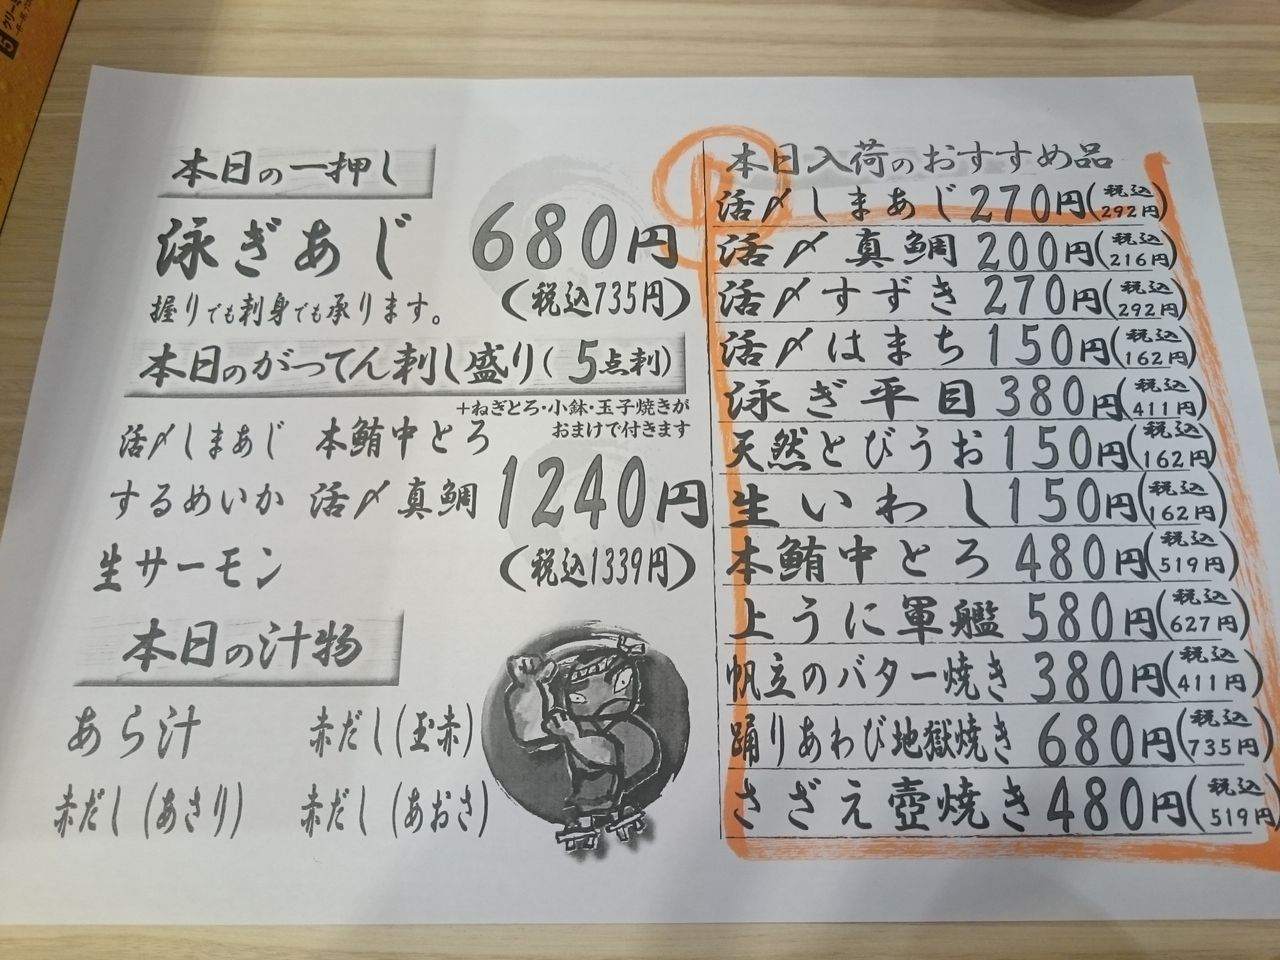 本日の一押し
泳ぎあじ 680円
(税込735円)
握りでも刺身でも承ります。
本日のがってん刺し盛り(5点刺)
+ねぎとろ・小鉢・玉子焼きが
おまけで付きます
活〆しまあじ 本鮪中とろ
するめいか 活〆真鯛 1240円
生サーモン (税込1339円)
本日の汁物
あら汁 赤だし(玉赤)
赤だし(あさり) 赤だし(あおさ)
本日入荷のおすすめ品
活〆しまあじ 270円(税込292円)
活〆真鯛 200円(税込216円)
活〆すずき 270円(税込292円)
活〆はまち 150円(税込162円)
泳ぎ平目 380円(税込411円)
天然とびうお 150円(税込162円)
生いわし 150円(税込162円)
本鮪中とろ 480円(税込519円)
上うに軍艦 580円(税込627円)
帆立のバター焼き 380円(税込411円)
踊りあわび地獄焼き 680円(税込735円)
さざえ壺焼き 480円(税込519円)